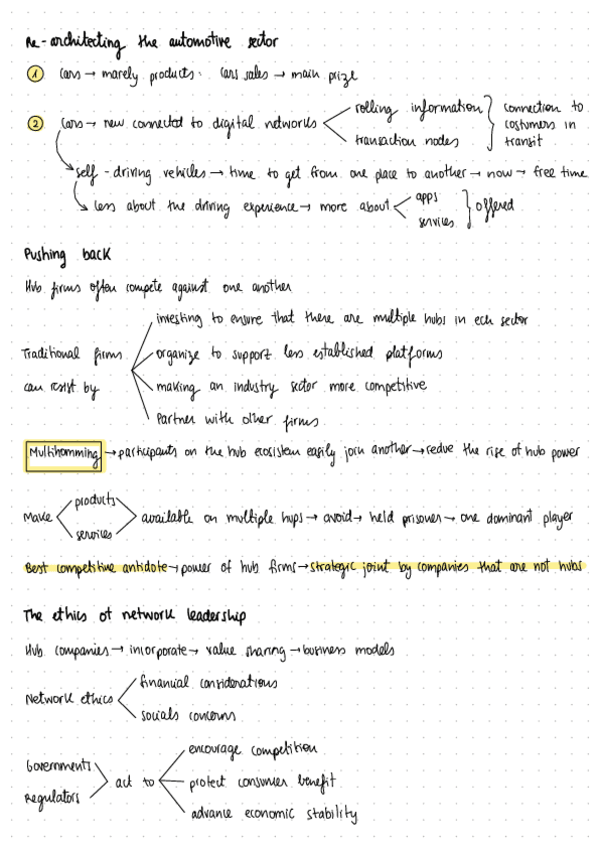 Re-architecting the automotive sector
1 cars → marely products. cars sales → main prize
2 cars → new connected to digital networks
rolling information
transaction nodes
connection to
costumers in
transit
self-driving vehicles → time to get from one place to another → now → free time
less about the driving experience → more about
apps
services
offered
Pushing back
Hub firms often compete against one another
Traditional firms
can resist by
investing to ensure that there are multiple hubs in ech sector
organize to support less established platforms
making an industry sector more competitive
Partner with other firms
Multihomming → participants on the hub ecosistem easily join another → redue the rise of hub power
Make
products
services
available on multiple hups → avoid → held prisoner → one dominant player
Best competitive antidote → power of hub firms → strategic joint by companies that are not hubs
The ethics of network leadership
Hub companies → incorporate → value sharing → business models
Network ethics
financial considerations
socials concerns
Governments
Regulators
act to
encourage competition
protect consumer benefit
advance economic stability